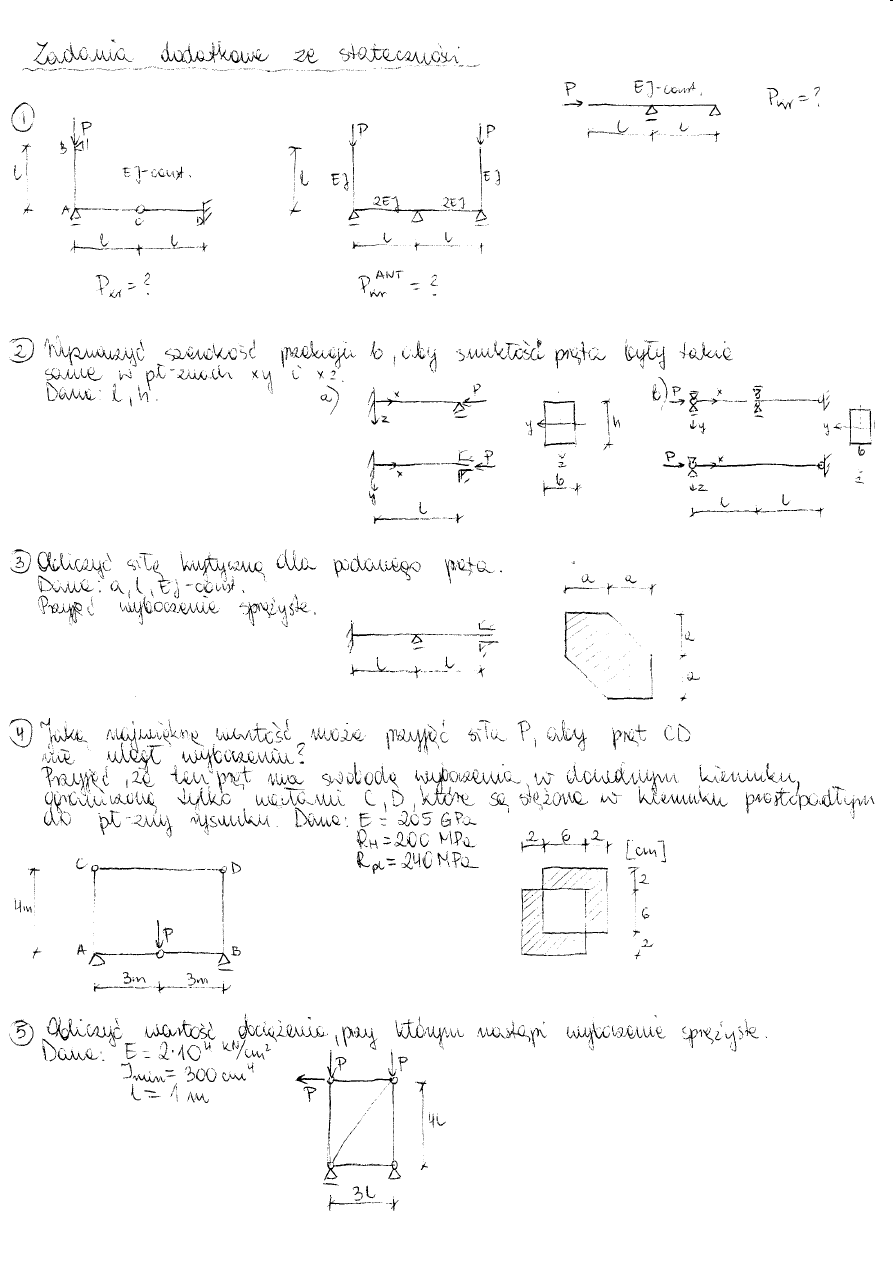 Zadania dodatkowe ze stateczności
P EJ-const. Pkr = ?
l l
1
P
B
l EJ-const.
A C D
l l
Pkr = ?
P P
l EJ EJ
2EJ 2EJ
l l
Pkr ANT = ?
2 Wyznaczyć szerokość przekroju b, aby smukłości pręta były takie
same w pł-znach xy i xz.
Dane: l, h.
a) x P
z
y h
x P
y z
l b
b) P x
y y
P b
x z
z
l l
3 Obliczyć siłę krytyczną dla podanego pręta.
Dane: a, l, EJ-const.
Przyjąć wyboczenie sprężyste.
l l
a a
a
a
4 Jaką największą wartość może przyjąć siła P, aby pręt CD
nie uległ wyboczeniu?
Przyjąć, że ten pręt ma swobodę wyboczenia w dowolnym kierunku,
ograniczoną tylko węzłami C, D, które są stężone w kierunku prostopadłym
do pł-zny rysunku. Dane: E = 205 GPa
RH = 200 MPa
Rpl = 240 MPa
C D
4m
P
A B
3m 3m
2 6 2 [cm]
2
6
2
5 Obliczyć wartość obciążenia, przy którym nastąpi wyboczenie sprężyste.
Dane: E = 2·10⁴ kN/cm²
Jmin = 300 cm⁴
l = 1 m
P P
P
4l
3l